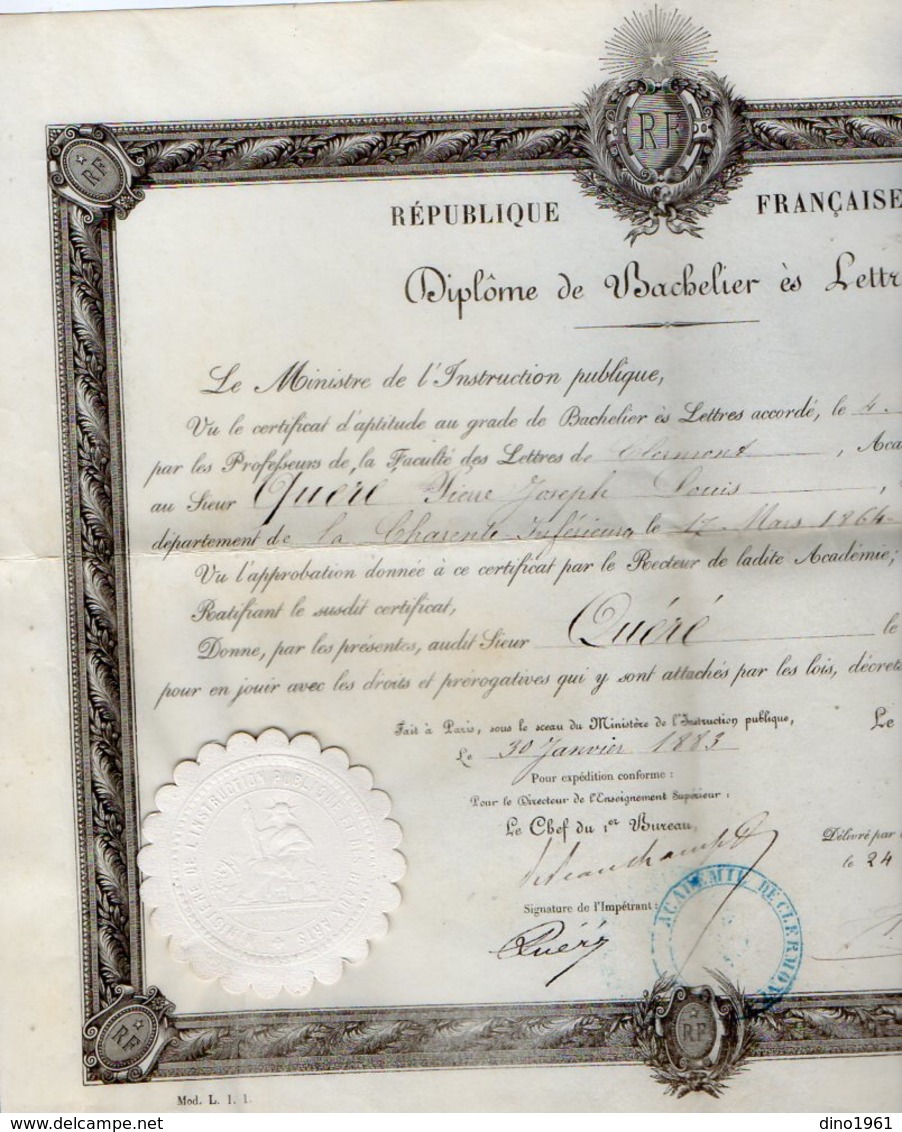 RF
RF
RÉPUBLIQUE FRANÇAISE
Diplôme de Bachelier ès Lettr
Le Ministre de l'Instruction publique,
Vu le certificat d'aptitude au grade de Bachelier ès Lettres accordé, le 4.
par les Professeurs de la Faculté des Lettres de Clermont, Aca
au Sieur Quéré Pierre Joseph Louis,
département de la Charente Inférieure, le 17 Mars 1864
Vu l'approbation donnée à ce certificat par le Recteur de ladite Académie;
Ratifiant le susdit certificat,
Donne, par les présentes, audit Sieur Quéré le
pour en jouir avec les droits et prérogatives qui y sont attachés par les lois, décrets
Fait à Paris, sous le sceau du Ministère de l'Instruction publique,
Le
Le 30 Janvier 1883
Pour expédition conforme :
Pour le Directeur de l'Enseignement Supérieur :
Le Chef du 1er Bureau,
Délivré par
le 24
Signature de l'Impétrant :
Quéré
ACADÉMIE DE CLERMON
DE L'INSTRUCTION PUB
RF
RF
Mod. L. 1. 1.
dino1961